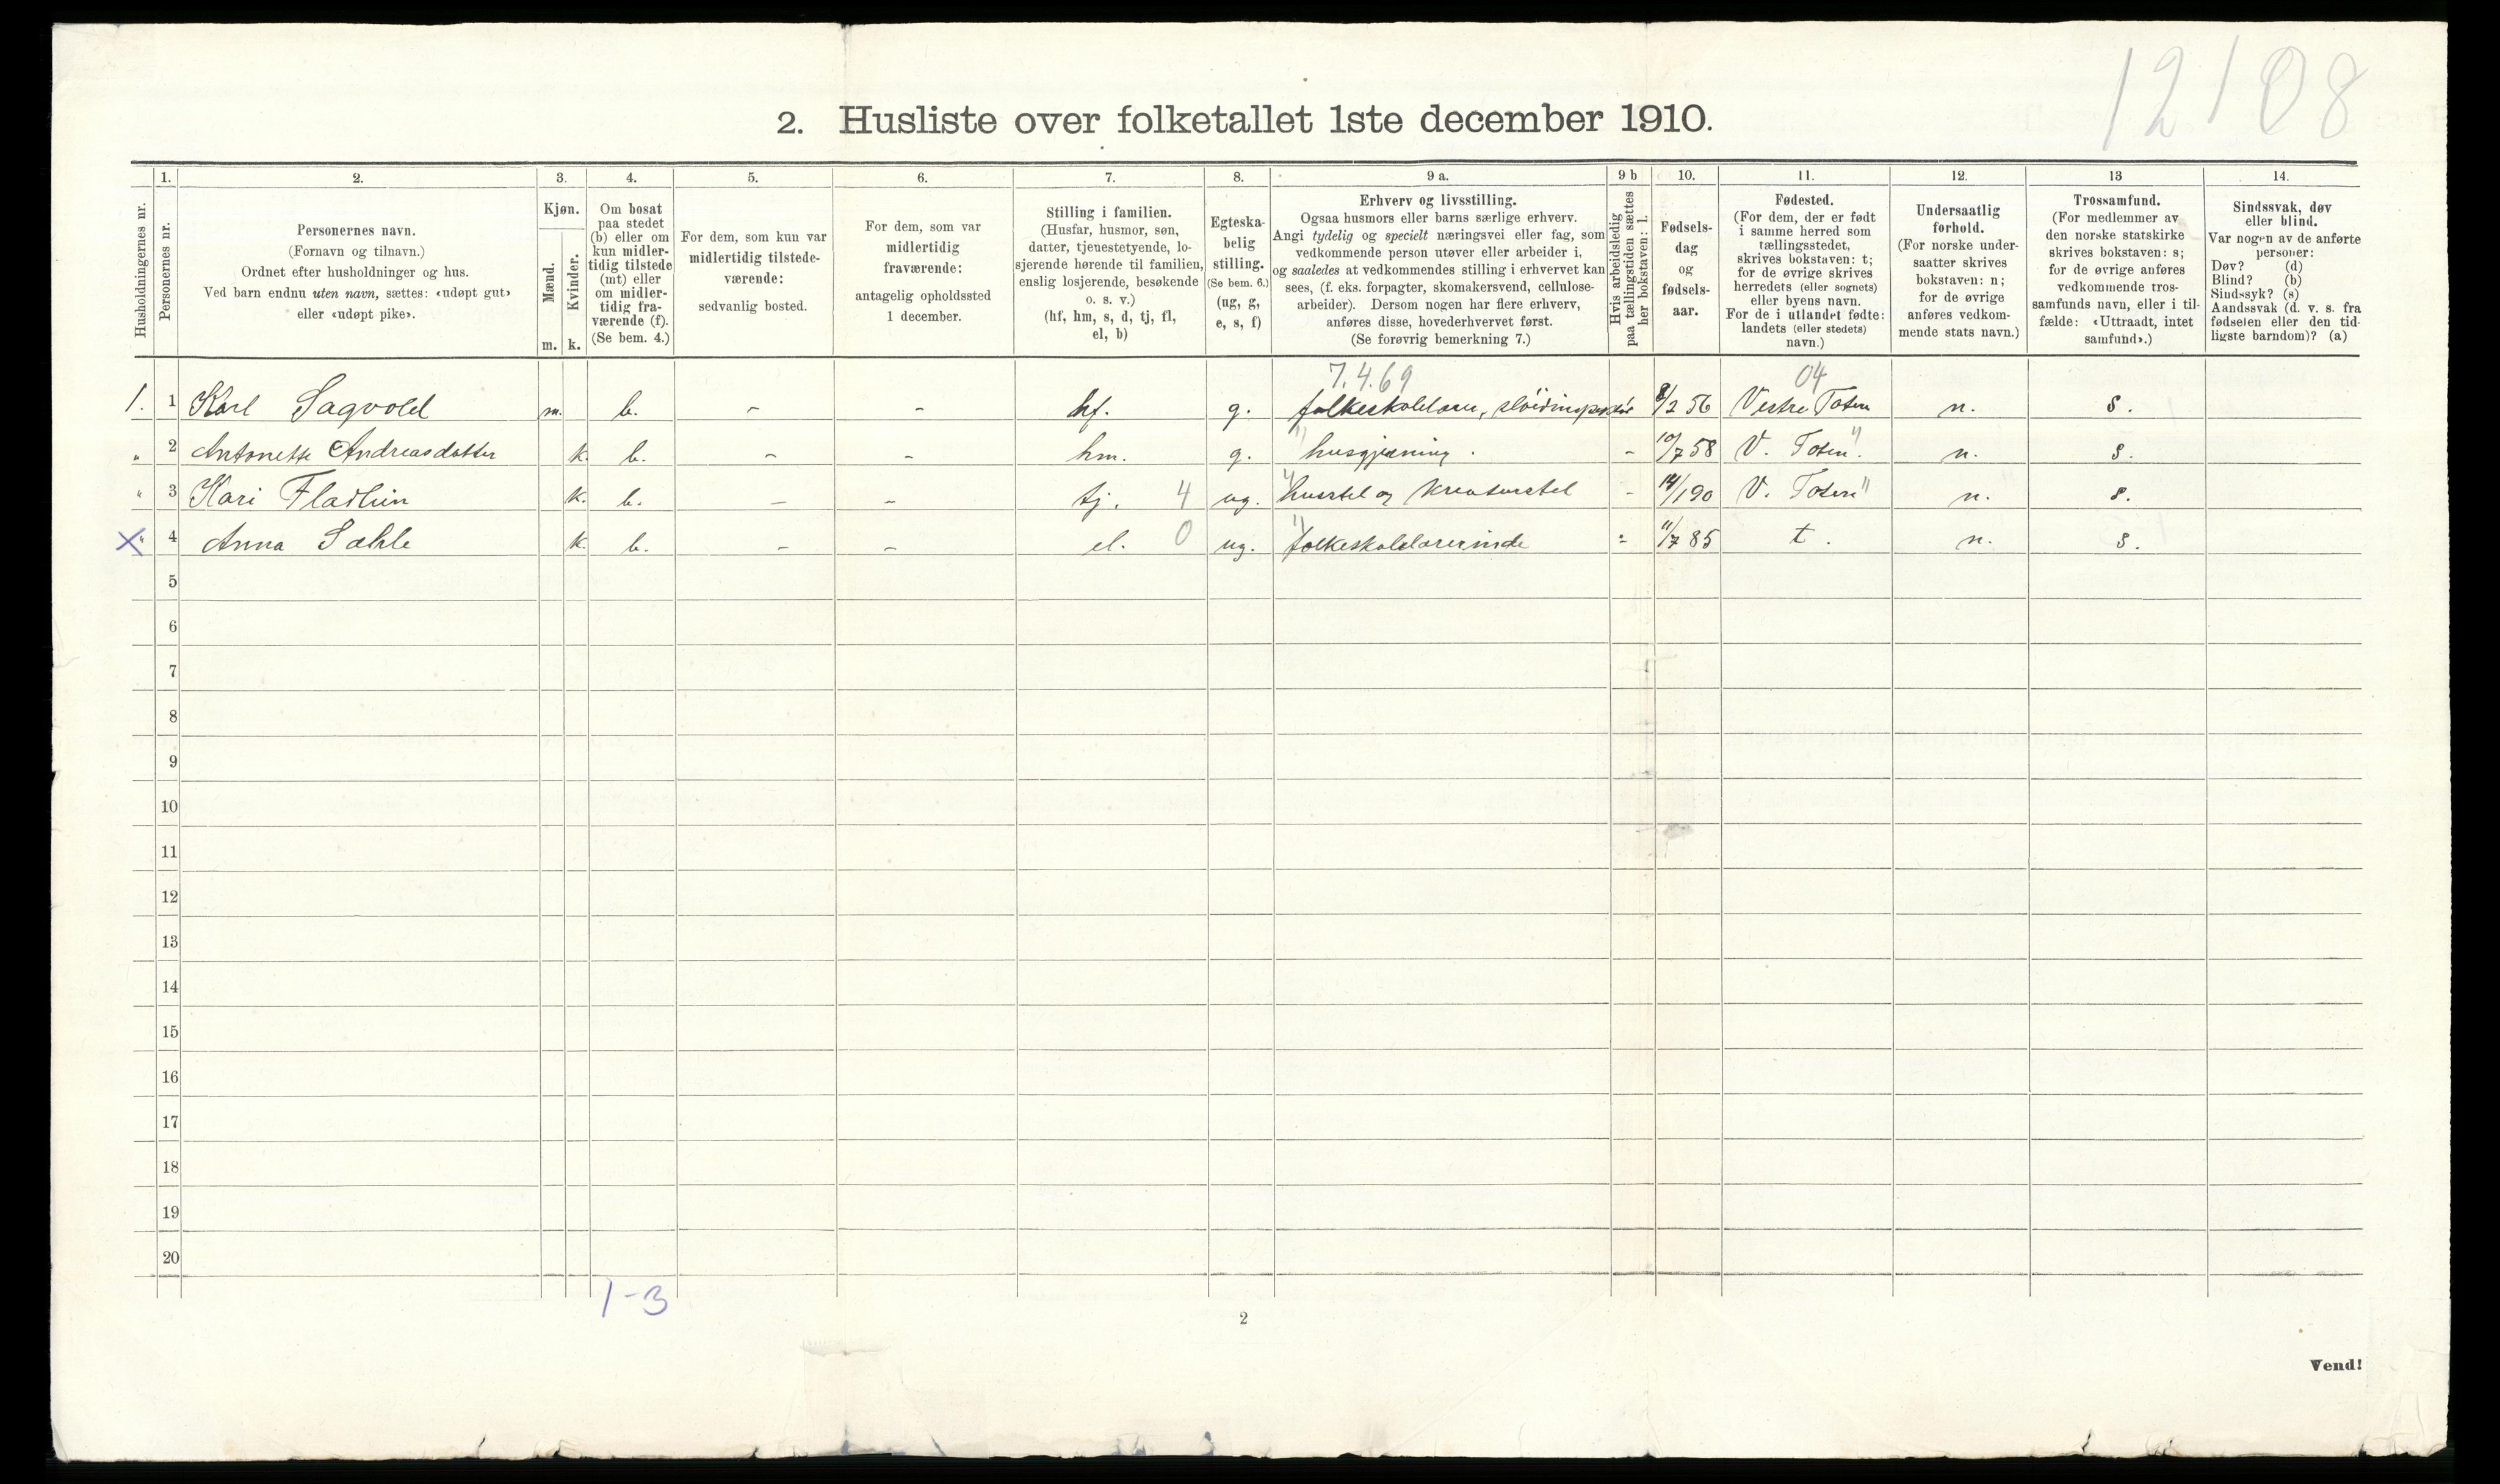 12108
2. Husliste over folketallet 1ste december 1910.
1. 2. 3. 4. 5. 6. 7. 8. 9 a. 9 b 10. 11. 12. 13 14.
Husholdningernes nr.
Personernes nr.
Personernes navn.
(Fornavn og tilnavn.)
Ordnet efter husholdninger og hus.
Ved barn endnu uten navn, sættes: «udøpt gut»
eller «udøpt pike».
Kjøn.
Mænd.
Kvinder.
m. k.
Om bosat
paa stedet
(b) eller om
kun midler-
tidig tilstede
(mt) eller
om midler-
tidig fra-
værende (f).
(Se bem. 4.)
For dem, som kun var
midlertidig tilstede-
værende:
sedvanlig bosted.
For dem, som var
midlertidig
fraværende:
antagelig opholdssted
1 december.
Stilling i familien.
(Husfar, husmor, søn,
datter, tjenestetyende, lo-
sjerende hørende til familien,
enslig losjerende, besøkende
o. s. v.)
(hf, hm, s, d, tj, fl,
el, b)
Egteska-
belig
stilling.
(Se bem. 6.)
(ug, g,
e, s, f)
Erhverv og livsstilling.
Ogsaa husmors eller barns særlige erhverv.
Angi tydelig og specielt næringsvei eller fag, som
vedkommende person utøver eller arbeider i,
og saaledes at vedkommendes stilling i erhvervet kan
sees, (f. eks. forpagter, skomakersvend, cellulose-
arbeider). Dersom nogen har flere erhverv,
anføres disse, hovederhvervet først.
(Se forøvrig bemerkning 7.)
Hvis arbeidsledig
paa tællingstiden sættes
her bokstaven: l.
Fødsels-
dag
og
fødsels-
aar.
Fødested.
(For dem, der er født
i samme herred som
tællingsstedet,
skrives bokstaven: t;
for de øvrige skrives
herredets (eller sognets)
eller byens navn.
For de i utlandet fødte:
landets (eller stedets)
navn.)
Undersaatlig
forhold.
(For norske under-
saatter skrives
bokstaven: n;
for de øvrige
anføres vedkom-
mende stats navn.)
Trossamfund.
(For medlemmer av
den norske statskirke
skrives bokstaven: s;
for de øvrige anføres
vedkommende tros-
samfunds navn, eller i til-
fælde: «Uttraadt, intet
samfund».)
Sindssvak, døv
eller blind.
Var nogen av de anførte
personer:
Døv? (d)
Blind? (b)
Sindssyk? (s)
Aandssvak (d. v. s. fra
fødselen eller den tid-
ligste barndom)? (a)
7.4.69 04
1. 1 Karl Sagvold m. b. - - hf. g. folkeskolelærer, sløidinspektør 8/2 56 Vestre Toten n. s.
" 2 Antonette Andreasdatter k. b. - - hm. g. " husgjerning. - 10/7 58 V. Toten. " n. s.
" 3 Kari Fladlien k. b. - - tj. 4 ug. " husstel og kreaturstel - 14/1 90 V. Toten " n. s.
X " 4 Anna Sæhle k. b. - - el. 0 ug. " folkeskolelærerinde - 11/7 85 t. n. s.
5
6
7
8
9
10
11
12
13
14
15
16
17
18
19
20
1-3
2
Vend!